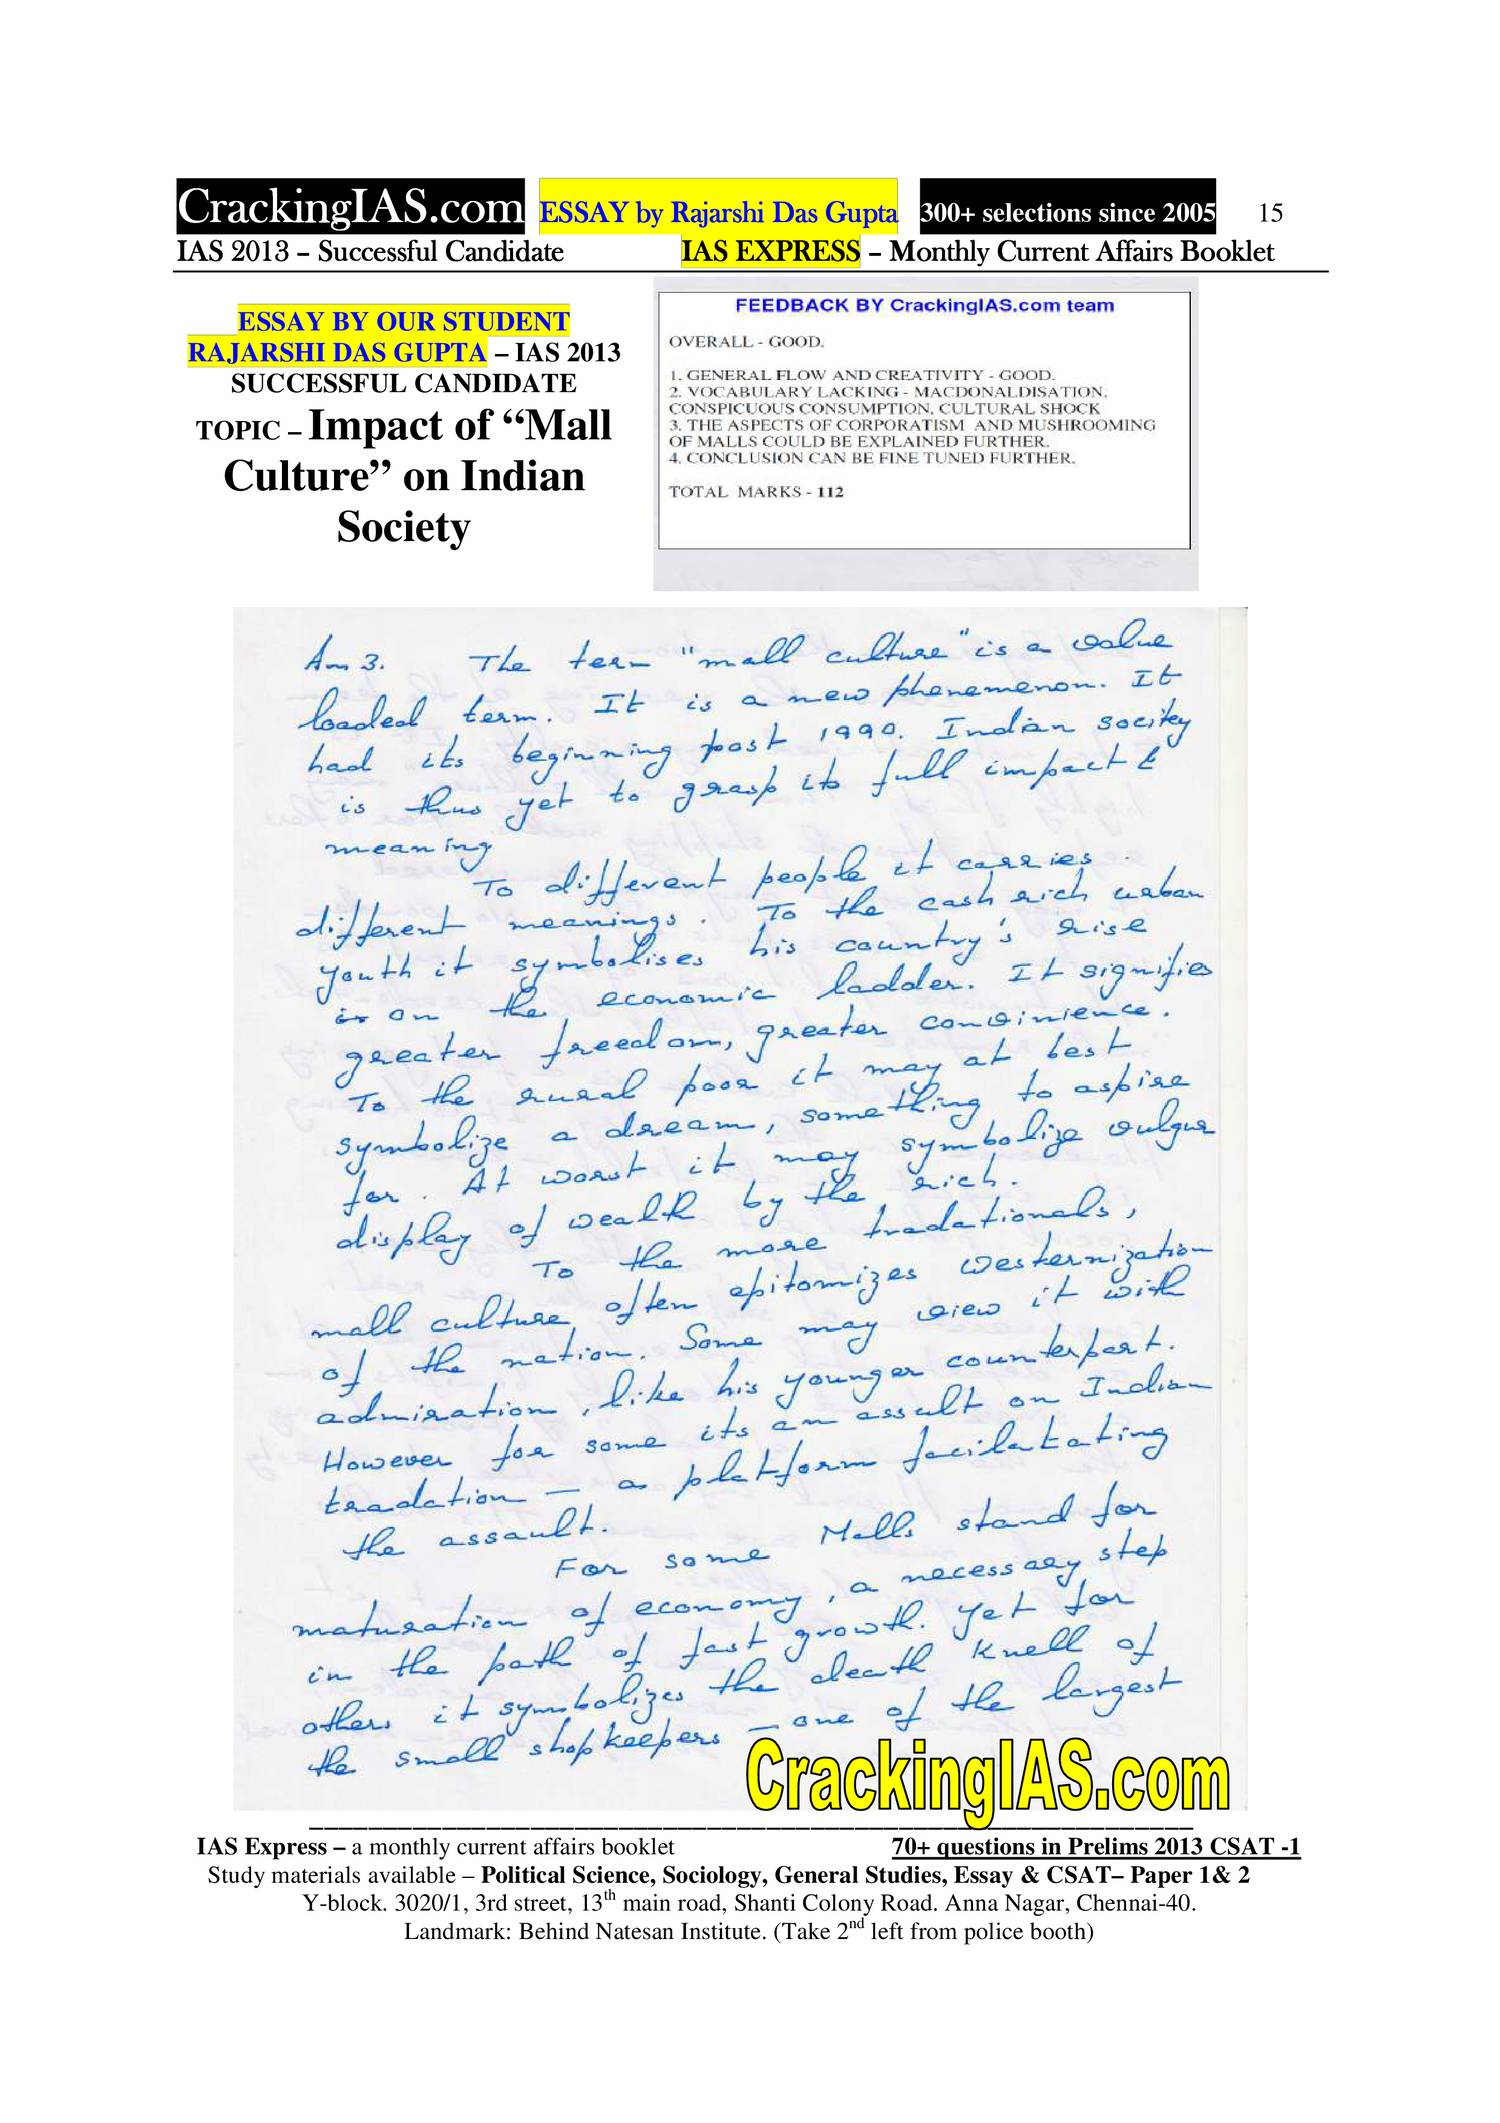 CrackingIAS.com ESSAY by Rajarshi Das Gupta 300+ selections since 2005 15
IAS 2013 – Successful Candidate IAS EXPRESS – Monthly Current Affairs Booklet
ESSAY BY OUR STUDENT
RAJARSHI DAS GUPTA – IAS 2013
SUCCESSFUL CANDIDATE
TOPIC – Impact of “Mall
Culture” on Indian
Society
FEEDBACK BY CrackingIAS.com team
OVERALL - GOOD.
1. GENERAL FLOW AND CREATIVITY - GOOD.
2. VOCABULARY LACKING - MACDONALDISATION,
CONSPICUOUS CONSUMPTION, CULTURAL SHOCK
3. THE ASPECTS OF CORPORATISM AND MUSHROOMING
OF MALLS COULD BE EXPLAINED FURTHER.
4. CONCLUSION CAN BE FINE TUNED FURTHER.
TOTAL MARKS - 112
Ans 3. The term "mall culture" is a value
loaded term. It is a new phenemenon. It
had its beginning post 1990. Indian socitey
is thus yet to grasp its full impact &
meaning
To different people it carries
different meanings. To the cash rich urban
youth it symbolises his country's rise
on the economic ladder. It signifies
greater freedom, greater convinience.
To the rural poor it may at best
symbolize a dream, something to aspire
for. At worst it may symbolize vulgur
display of wealth by the rich.
To the more tradationals,
mall culture often epitomizes westernization
of the nation. Some may view it with
admiration, like his younger counterpart.
However for some its an assult on Indian
tradation — a platform facilatating
the assault.
For some Malls stand for
maturation of economy, a necessary step
in the path of fast growth. Yet for
others it symbolizes the death knell of
the small shopkeepers — one of the largest
CrackingIAS.com
IAS Express – a monthly current affairs booklet 70+ questions in Prelims 2013 CSAT -1
Study materials available – Political Science, Sociology, General Studies, Essay & CSAT– Paper 1& 2
Y-block. 3020/1, 3rd street, 13th main road, Shanti Colony Road. Anna Nagar, Chennai-40.
Landmark: Behind Natesan Institute. (Take 2nd left from police booth)